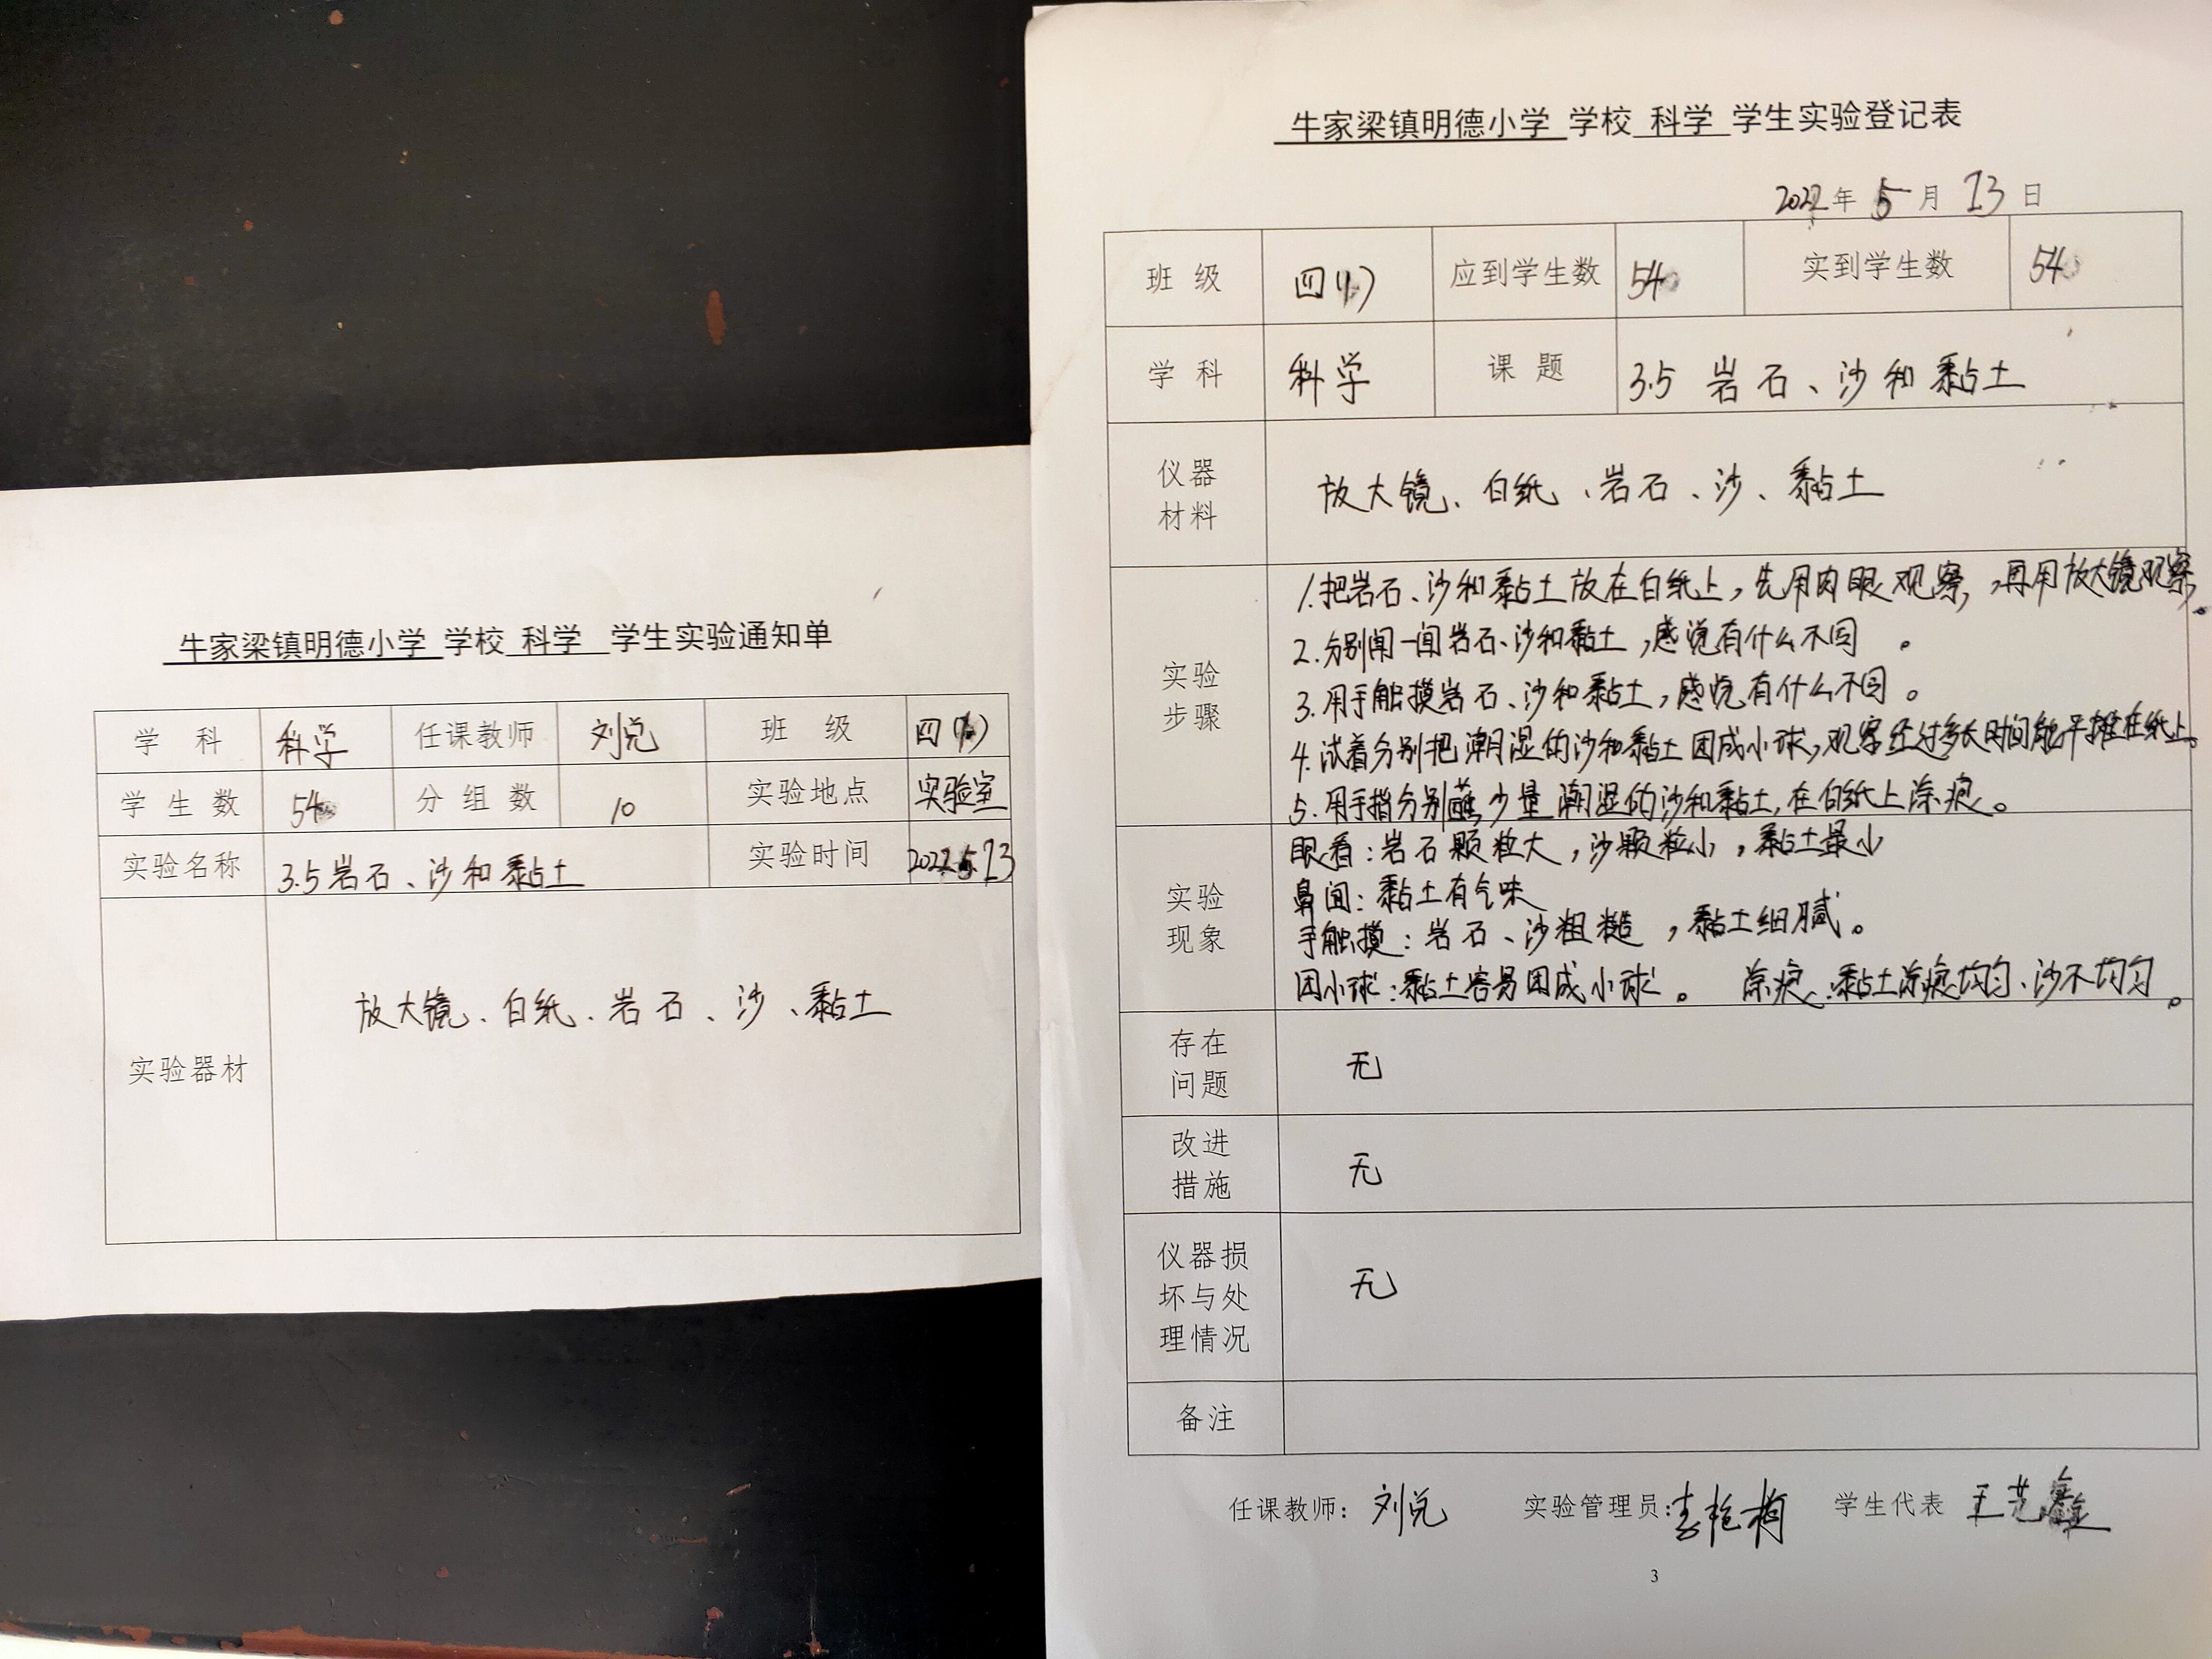 牛家梁镇明德小学 学校 科学 学生实验通知单
学 科 科学 任课教师 刘兑 班 级 四(1)
学生数 54 分组数 10 实验地点 实验室
实验名称 3.5岩石、沙和黏土 实验时间 2022.5.13
实验器材 放大镜、白纸、岩石、沙、黏土
牛家梁镇明德小学 学校 科学 学生实验登记表
2022年 5月 13日
班 级 四(1) 应到学生数 54 实到学生数 54
学 科 科学 课 题 3.5 岩石、沙和黏土
仪器
材料
放大镜、白纸、岩石、沙、黏土
实验
步骤
1.把岩石、沙和黏土放在白纸上,先用肉眼观察,再用放大镜观察。
2.分别闻一闻岩石、沙和黏土,感觉有什么不同。
3.用手触摸岩石、沙和黏土,感觉有什么不同。
4.试着分别把潮湿的沙和黏土团成小球,观察经过多长时间能平摊在纸上。
5.用手指分别蘸少量潮湿的沙和黏土,在白纸上涂痕。
实验
现象
眼看:岩石颗粒大,沙颗粒小,黏土最小
鼻闻:黏土有气味
手触摸:岩石、沙粗糙,黏土细腻。
团小球:黏土容易团成小球。 涂痕:黏土涂痕均匀、沙不均匀。
存在
问题
无
改进
措施
无
仪器损
坏与处
理情况
无
备注
任课教师: 刘兑 实验管理员: 李艳梅 学生代表 王艺鑫
3